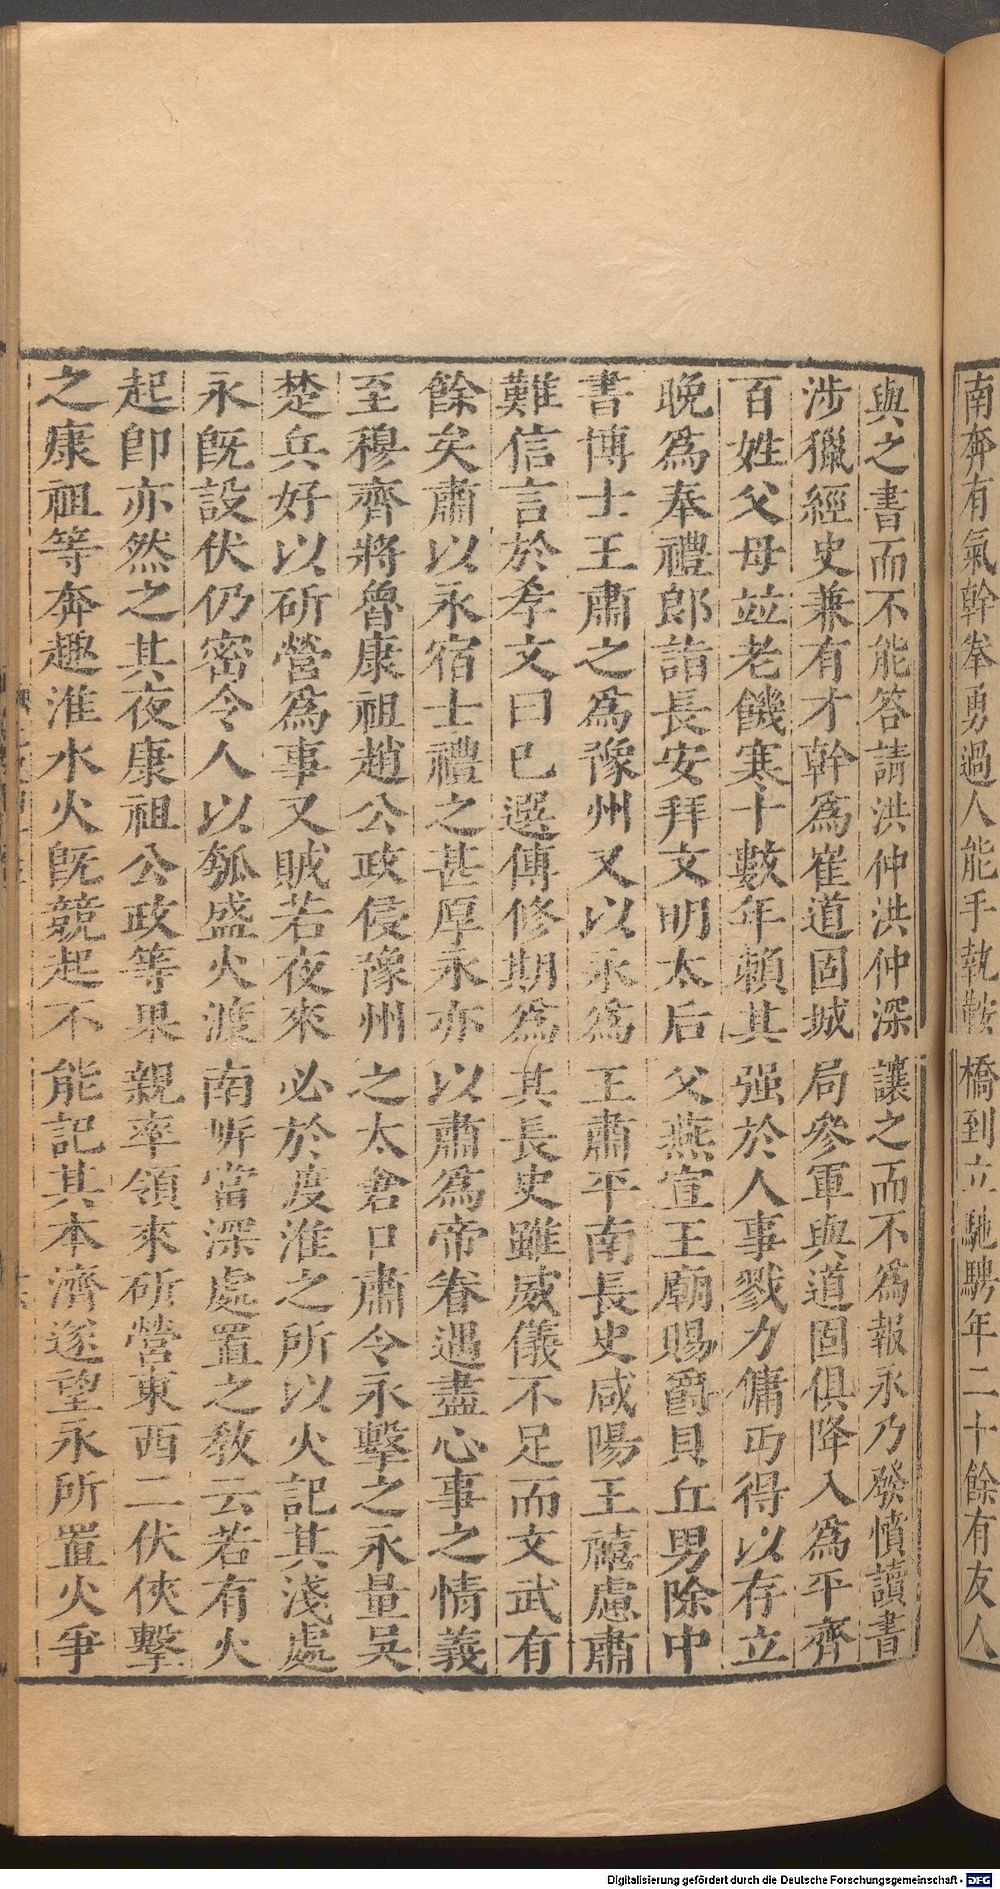 南奔有氣幹拳勇過人能手執鞍橋到立馳騁年二十餘有友人
與之書而不能答請洪仲洪仲深讓之而不爲報永乃發憤讀書
涉獵經史兼有才幹爲崔道固城局參軍與道固俱降入爲平齊
百姓父母竝老饑寒十數年賴其强於人事戮力傭丐得以存立
晚爲奉禮郎詣長安拜文明太后父燕宣王廟賜爵貝丘男除中
書博士王肅之爲豫州又以永爲王肅平南長史咸陽王禧慮肅
難信言於孝文曰已選傅修期爲其長史雖威儀不足而文武有
餘矣肅以永宿士禮之甚厚永亦以肅爲帝眷遇盡心事之情義
至穆齊將魯康祖趙公政侵豫州之太倉口肅令永擊之永量吳
楚兵好以斫營爲事又賊若夜來必於度淮之所以火記其淺處
永旣設伏仍密令人以瓠盛火渡南听當深處置之教云若有火
起卽亦然之其夜康祖公政等果親率領來斫營東西二伏俠擊
之康祖等奔趣淮水火旣競起不能記其本濟遂望永所置火爭
Digitalisierung gefördert durch die Deutsche Forschungsgemeinschaft - DFG